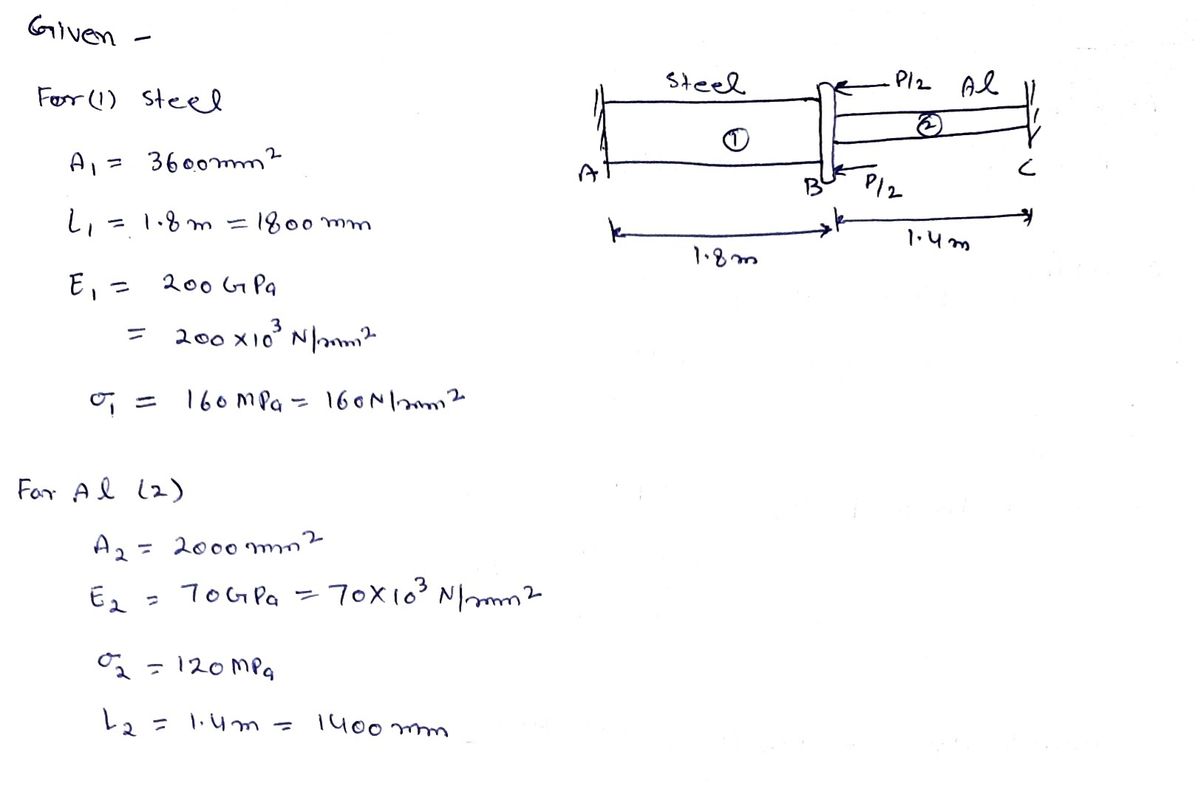 Given -
For (1) Steel
A₁ = 3600mm²
L₁ = 1.8 m = 1800 mm
E₁ = 200 GPa
= 200 x10³ N/mm²
σ₁ = 160 MPa = 160N/mm²
For Al (2)
A₂ = 2000 mm²
E₂ = 70GPa = 70X10³ N/mm²
σ₂ = 120 MPa
L₂ = 1.4m = 1400 mm
Steel
P/2
Al
①
②
A
B
P/2
C
1.8m
1.4m